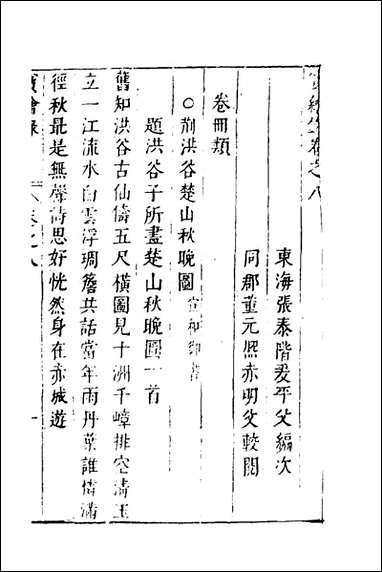 寶繪錄卷之八
東海張泰階爰平父編次
同郡董元熙赤明父較閱
卷冊類
○荊洪谷楚山秋晚圖 宣和印書
題洪谷子所畫楚山秋晚圖一首
舊知洪谷古仙儔五尺橫圖見十洲千嶂排空清玉
立一江流水白雲浮琱簷共話當年雨丹葉誰情滿
徑秋最是無聲詩思好恍然身在赤城遊
寶繪錄 卷之八 一